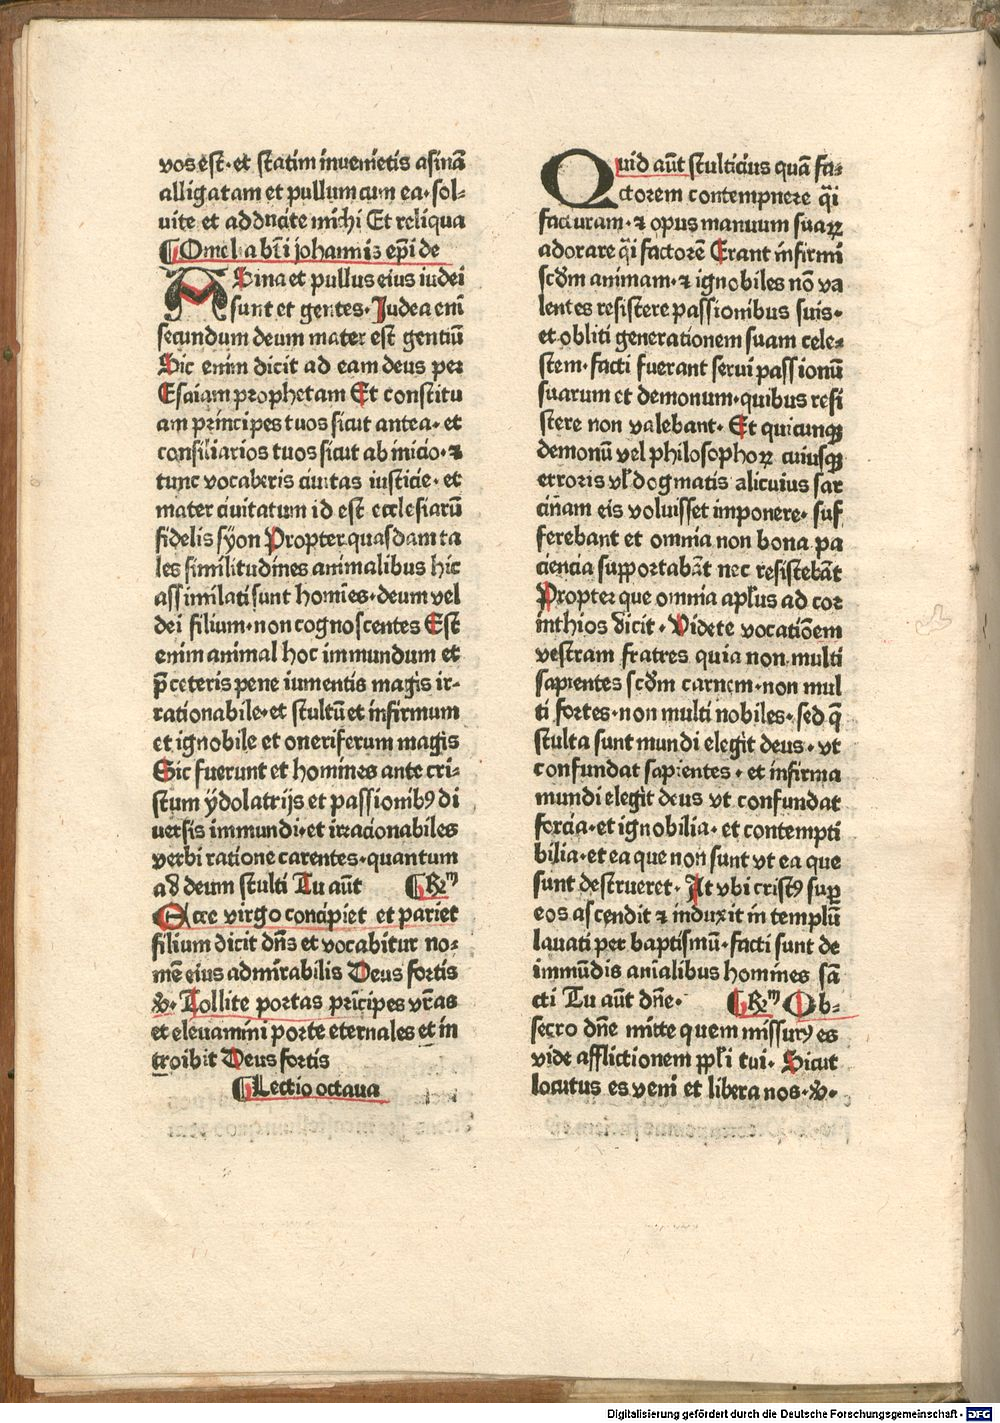 vos est· et statim inuenietis asinā
alligatam et pullum cum ea· sol-
uite et adducite michi Et reliqua
¶Omelia bt̄i johannis ep̄i de
ASina et pullus eius iudei
sunt et gentes· Judea enī
secundum deum mater est gentiū
Sic enim dicit ad eam deus per
Esaiam prophetam Et constitu
am principes tuos sicut antea· et
consiliarios tuos sicut ab inicio· ⁊
tunc vocaberis ciuitas iusticie· et
mater ciuitatum id est ecclesiarū
fidelis sÿon Propter quasdam ta
les similitudines animalibus hic
assimilati sunt homīes· deum vel
dei filium· non cognoscentes Est
enim animal hoc immundum et
p̄ceteris pene iumentis magis ir-
rationabile· et stultū et infirmum
et ignobile et oneriferum magis
Sic fuerunt et homines ante cri-
stum ÿdolatrijs et passionibꝰ di
uersis immundi· et irracionabiles
verbi ratione carentes· quantum
ad deum stulti Tu aūt ¶R̄m
Ecce virgo concipiet et pariet
filium dicit dn̄s et vocabitur no-
mē eius admirabilis Deus fortis
℣· Tollite portas prīcipes vr̄as
et eleuamini porte eternales et in
troibit Deus fortis
¶Lectio octaua
Quid aūt stulticius quā fa-
ctorem contempnere q̄i
facturam· ⁊ opus manuum suaꝝ
adorare q̄i factorē Erant infirmi
scd̄m animam· ⁊ ignobiles nō va
lentes resistere passionibus suis·
et obliti generationem suam cele-
stem· facti fuerant serui passionū
suarum et demonum· quibus resi
stere non valebant· Et quicunqꝫ
demonū vel philosophoꝝ cuiusqꝫ
erroris vl̄ dogmatis alicuius sar
cīnam eis voluisset imponere· suf
ferebant et omnia non bona pa
ciencia supportabāt nec resistebāt
Propter que omnia apl̄us ad cor
inthios dicit· Videte vocatiōem
vestram fratres quia non multi
sapientes scd̄m carnem· non mul
ti fortes· non multi nobiles· sed q̄
stulta sunt mundi elegit deus· vt
confundat sapientes· et infirma
mundi elegit deus vt confundat
forcia· et ignobilia· et contempti
bilia· et ea que non sunt vt ea que
sunt destrueret· At vbi cristꝰ suꝑ
eos ascendit ⁊ induxit in templū
lauati per baptismū· facti sunt de
immūdis anīalibus homines sā
cti Tu aūt dn̄e· ¶R̄m Ob-
secro dn̄e mitte quem missurꝰ es
vide afflictionem ppl̄i tui· Sicut
locutus es veni et libera nos· ℣·
Digitalisierung gefördert durch die Deutsche Forschungsgemeinschaft - DFG